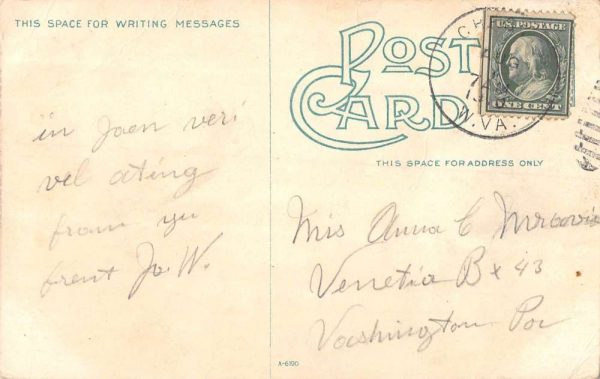 THIS SPACE FOR WRITING MESSAGES
POST CARD
U.S. POSTAGE
ONE CENT
W.VA.
THIS SPACE FOR ADDRESS ONLY
in Joen veri
vel ating
from yu
frent Jo W.
Mis Anna C
Venetia Bx 43
Vashington Pa
A-6190